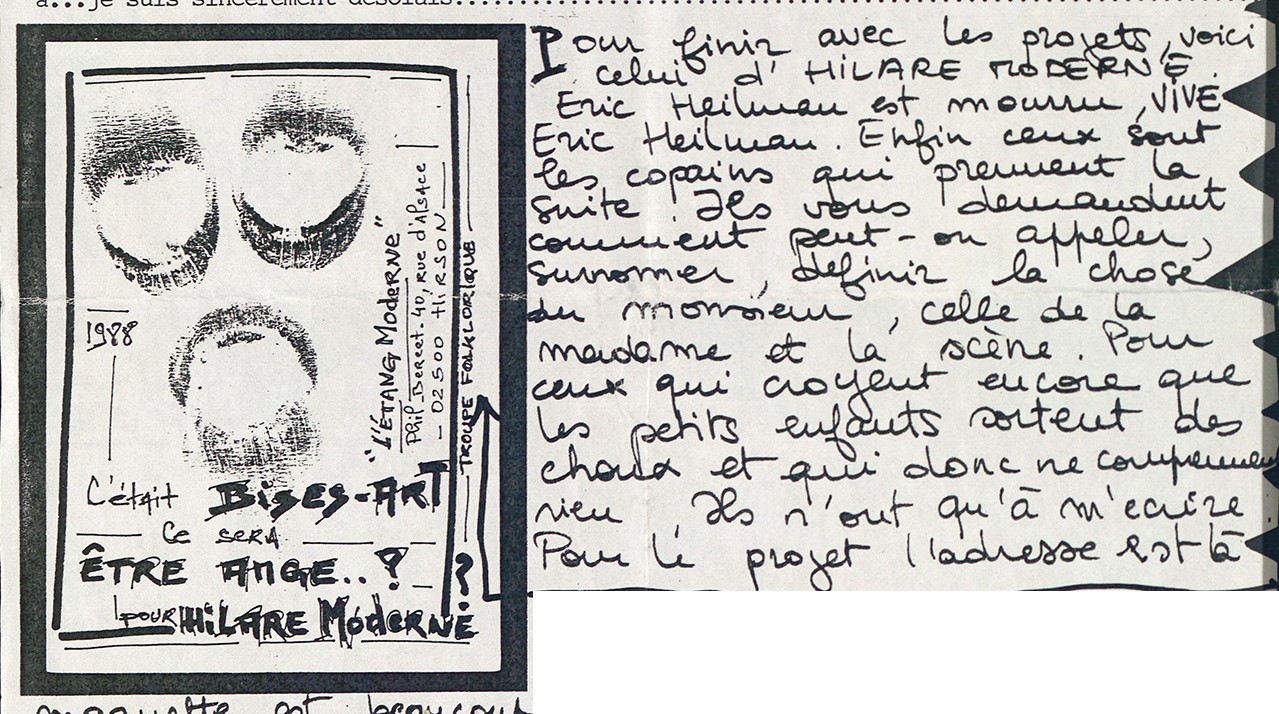 a...je suis sincèrement désolais
1988
"L'ÉTANG MODERNE"
Phil_Bercet. 40, Rue d'Alsace
- 02500 HiRSON
TROUPE FOLKLORIQUE
C'était BiSES-ART
Ce SERA
ÊTRE ANGE..?
pour HiLARE MODERNE ?
Pour finir avec les projets, voici
celui d' HiLARE MODERNE.
Eric Heilman est mourru, VIVE
Eric Heilman. Enfin ceux sont
les copains qui prennent la
suite! Ils vous demandent
comment peut-on appeler,
surnomer, définir la chose
du monsieur, celle de la
madame et la scène. Pour
ceux qui croyent encore que
les petits enfants sortent des
choux et qui donc ne comprennent
rien, Ils n'ont qu'à m'écrire.
Pour le projet l'adresse est là
est beaucoup